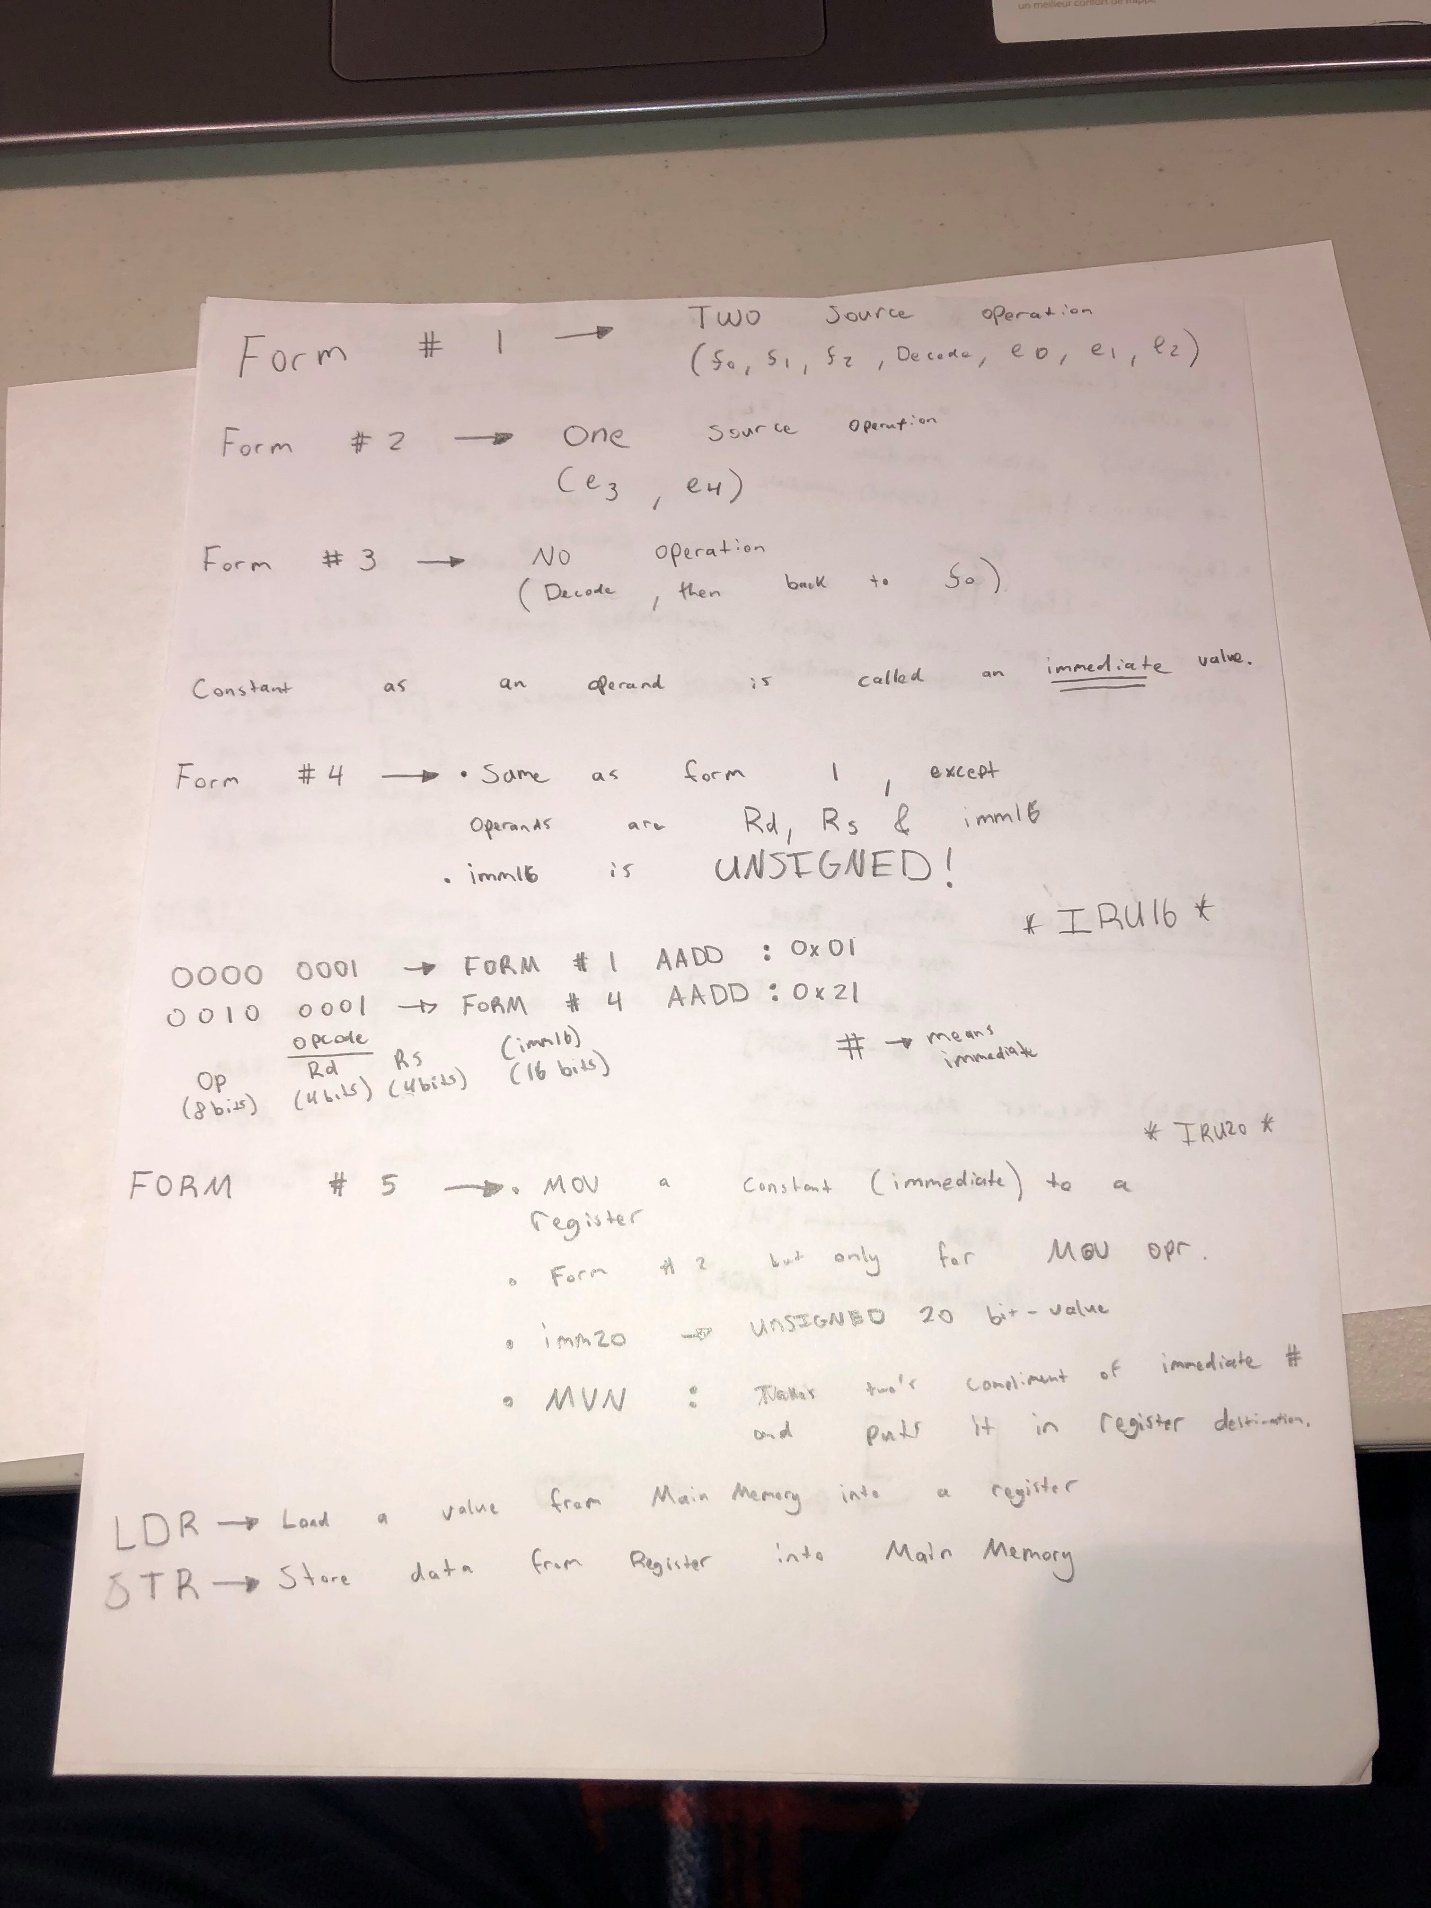 un meilleur confort de frappe
Form # 1 → TWO source operation
(f0, f1, f2, Decode, e0, e1, e2)
Form # 2 → One source operation
(e3, e4)
Form # 3 → NO operation
(Decode, then back to f0)
Constant as an operand is called an immediate value.
Form # 4 → • Same as form 1, except
operands are Rd, Rs & imm16
• imm16 is UNSIGNED!
* IRU16 *
0000 0001 → FORM # 1 AADD : 0x01
0010 0001 → FORM # 4 AADD : 0x21
# → means
immediate
opcode
Op Rd Rs (imm16)
(8bits) (4bits) (4bits) (16 bits)
* IRU20 *
FORM # 5 → • MOV a constant (immediate) to a
register
• Form # 2 but only for MOV opr.
• imm20 → UNSIGNED 20 bit-value
• MVN : Takes two's compliment of immediate #
and puts it in register destination.
LDR → Load a value from Main Memory into a register
STR → Store data from Register into Main Memory